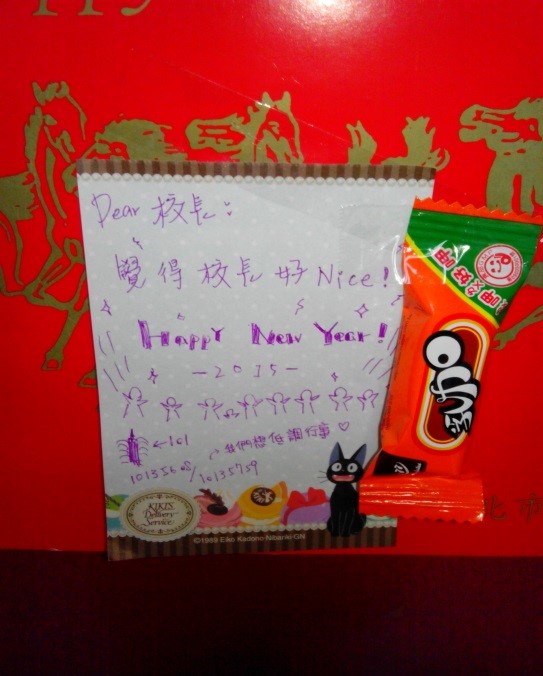 Dear 校長：
覺得校長好Nice!
Happy New Year!
-2015-
←101
我們想低調行事♡
10135608/10135759
KIKI'S
Delivery
Service
©1989 Eiko Kadono Nibariki GN
呷好呷
北市